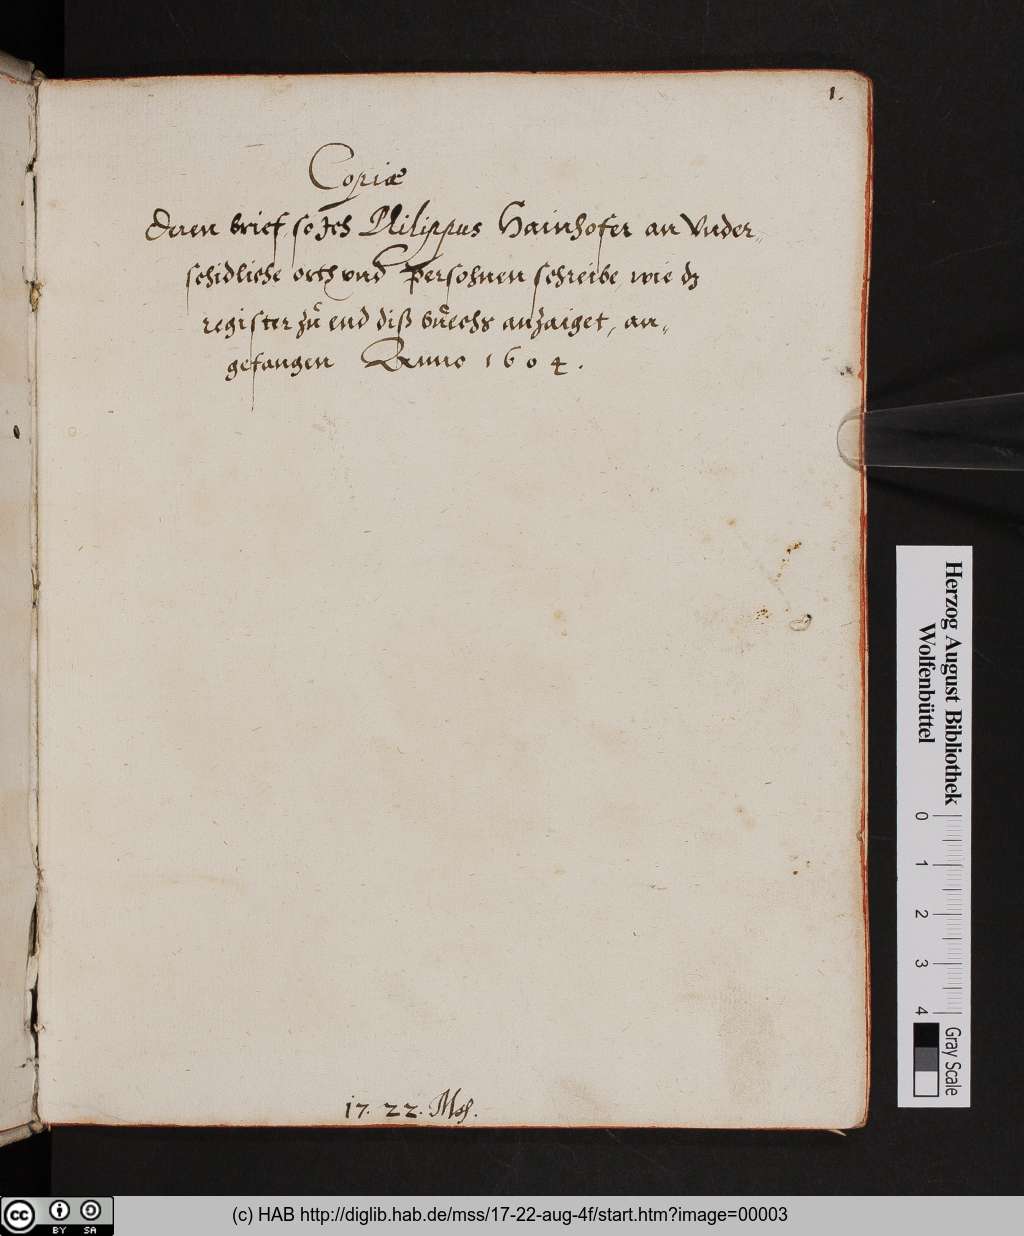 1.
Copiæ
deren brief, so Ich Philippus Hainhofer an Vnder=
schidliche orth vnd Persohnen schreibe, wie dz
register zů end diß bůechs anzaiget, an=
gefangen Anno 1604.
17. 22. Msf.
Herzog August Bibliothek
Wolfenbüttel
0 1 2 3 4
Gray Scale
cc BY SA
(c) HAB http://diglib.hab.de/mss/17-22-aug-4f/start.htm?image=00003